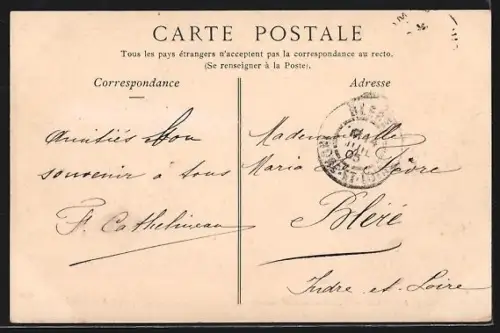 CARTE POSTALE
Tous les pays étrangers n'acceptent pas la correspondance au recto.
(Se renseigner à la Poste).
Correspondance
Adresse
Amitiés Bon
souvenir à tous
F. Cathelineau
Mademoiselle
Maria
Bléré
Indre et Loire
BLÉRÉ
05
INDRE-ET-LOIRE